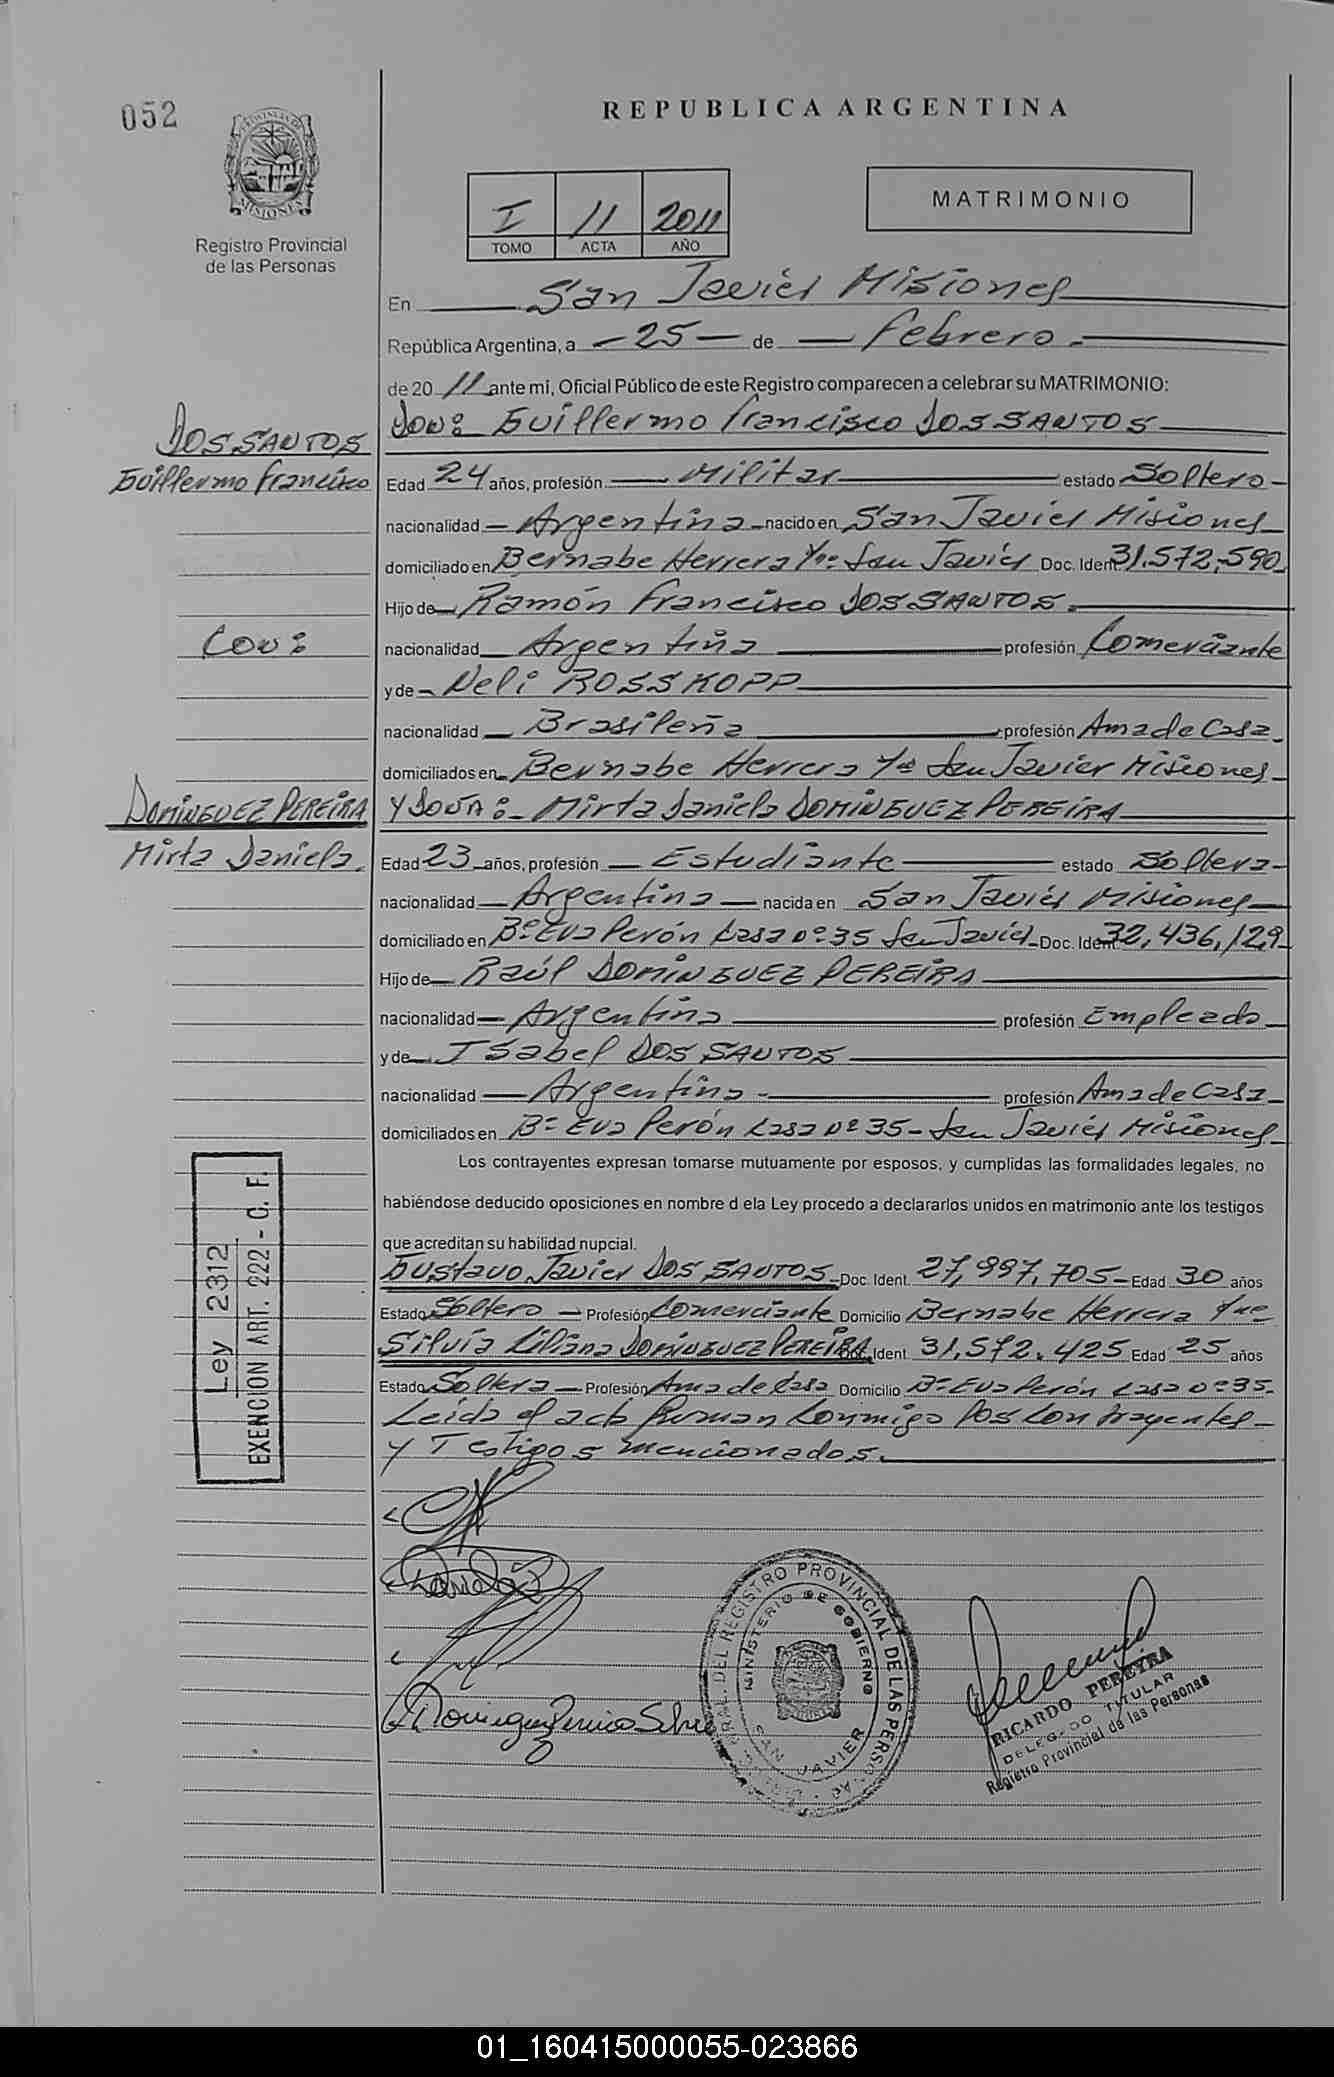 052
REPUBLICA ARGENTINA
PROVINCIA DE
MISIONES
Registro Provincial
de las Personas
I 11 2011
TOMO ACTA AÑO
MATRIMONIO
En San Javier Misiones
República Argentina, a - 25 - de - febrero.-
de 20 11 ante mi, Oficial Público de este Registro comparecen a celebrar su MATRIMONIO:
DOS SANTOS
Guillermo Francisco
Don: Guillermo Francisco DOS SANTOS
Edad 24 años, profesión Militar estado Soltero-
nacionalidad - Argentina - nacido en San Javier Misiones
domiciliado en Bernabe Herrera San Javier Doc. Ident 31.572.590
Hijo de Ramón Francisco DOS SANTOS.
Con:
nacionalidad Argentina profesión Comerciante
y de - Neli ROSSKOPP
nacionalidad - Brasileña profesión Ama de Casa.
domiciliados en Bernabe Herrera San Javier Misiones
DOMINGUEZ PEREIRA
Mirta Daniela.
Y DOÑA:- Mirta Daniela DOMINGUEZ PEREIRA
Edad 23 años, profesión - Estudiante estado Soltera-
nacionalidad - Argentina - nacida en San Javier Misiones
domiciliado en Bº Eva Perón Casa nº 35 San Javier - Doc. Ident 32,436,129
Hijo de Raúl DOMINGUEZ PEREIRA
nacionalidad - Argentina profesión Empleado
y de Isabel DOS SANTOS
nacionalidad - Argentina - profesión Ama de Casa
domiciliados en Bº Eva Perón Casa Nº 35 - San Javier Misiones
Los contrayentes expresan tomarse mutuamente por esposos, y cumplidas las formalidades legales, no
habiéndose deducido oposiciones en nombre d ela Ley procedo a declararlos unidos en matrimonio ante los testigos
que acreditan su habilidad nupcial.
Gustavo Javier DOS SANTOS - Doc. Ident. 27,997,705 - Edad 30 años
Estado Soltero - Profesión Comerciante Domicilio Bernabe Herrera
Silvia Liliana DOMINGUEZ PEREIRA Ident 31.572.425 Edad 25 años
Estado Soltera - Profesión Ama de Casa Domicilio Bº Eva Perón Casa nº 35.
Leida el acta firman conmigo los contrayentes
y Testigos mencionados.
Ley 2312
EXENCION ART. 222 - C. F.
Daniela
Dominguez Pereira Silvia
DEL REGISTRO PROVINCIAL DE LAS PERSONAS
MINISTERIO DE GOBIERNO
SAN JAVIER
RICARDO PEREYRA
DELEGADO TITULAR
Registro Provincial de las Personas
01_160415000055-023866